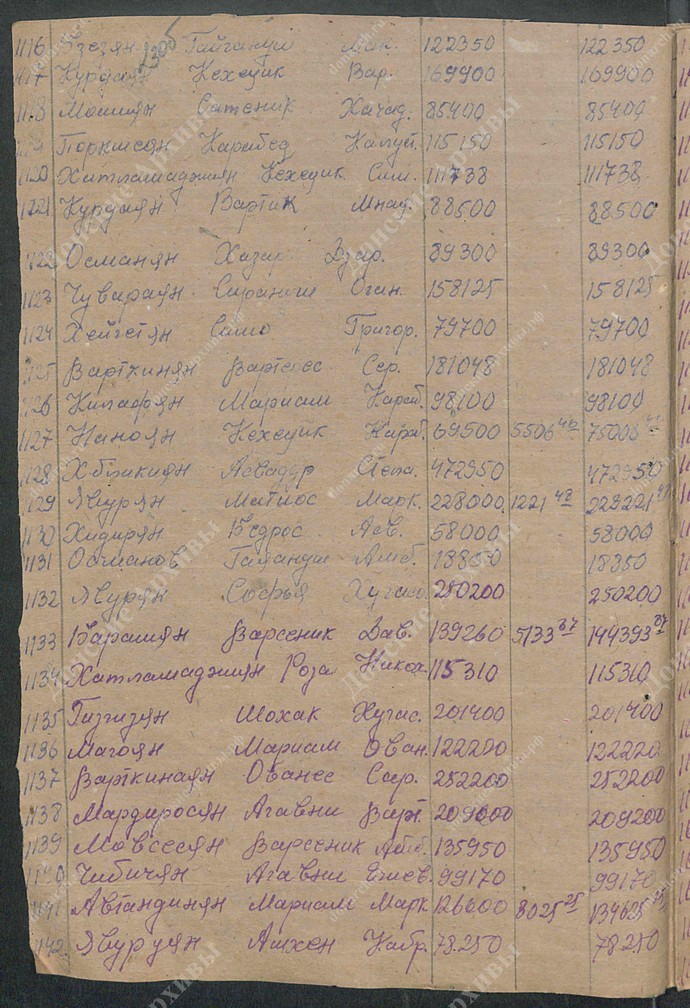 1116 Эзезян Гайгануш Мак. 122350 122350
1306
1117 Курдаян Кехецик Вар. 169900 169900
1118 Мошиян Сатеник Хачад. 85400 85400
Поркшеян Карабед Калуст. 115150 115150
1120 Хатламаджиян Кехецик Сим. 111738 111738
1121 Курдаян Вартик Мнац. 88500 88500
1122 Османян Хазар Эзар. 89300 89300
1123 Чувараян Сирануш Оган. 158125 158125
1124 Хейгетян Сашо Григор. 79700 79700
1125 Варткинян Вартерес Сер. 181048 181048
1126 Килафян Мариам Караб. 98100 98100
1127 Наноян Кехецик Караб. 69500 5506 75006
1128 Асвадур Степа. 472950 472950
1129 Явурян Матиос Марк. 228000 1221 48 229221 48
1130 Хидирян Бедрос Асв. 58000 58000
1131 Османов Гайануш Амб. 18350 18350
1132 Явурян Софья Хугас. 250200 250200
1133 Барашян Варсеник Дав. 139260 5133 87 144393 87
1134 Хатламаджиян Роза Никох. 115310 115310
1135 Гизгизян Шохак Хугас. 201400 201400
1136 Магоян Мариам Ован. 122200 122220
1137 Варткинаян Ованес Сар. 252200 252200
1138 Мардиросян Агавни Варт. 209200 209200
1139 Мовсесян Варсеник Амб. 135950 135950
1140 Чибичян Агавни Егиев. 99170 99170
1141 Автандинян Мариам Марк 126600 8025 25 134625 25
1142 Явуруян Ашхен Кабр. 78250 78250